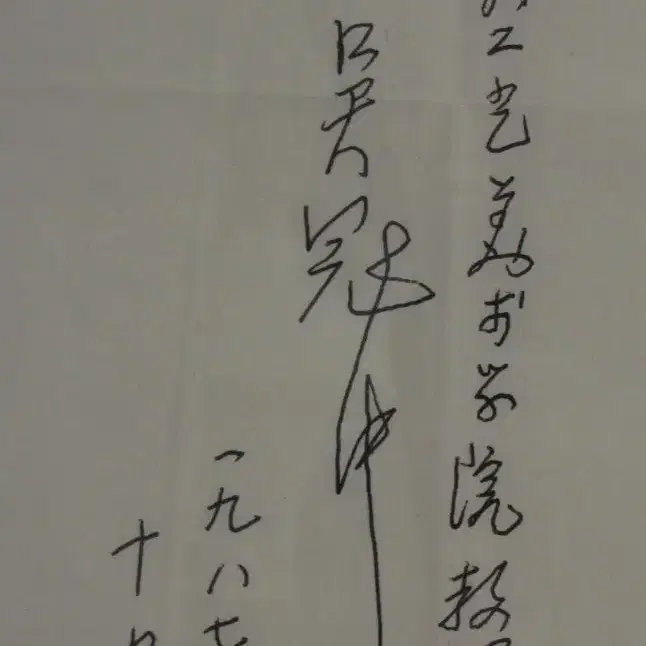 工艺美术学院教
吴冠中
一九八七
十